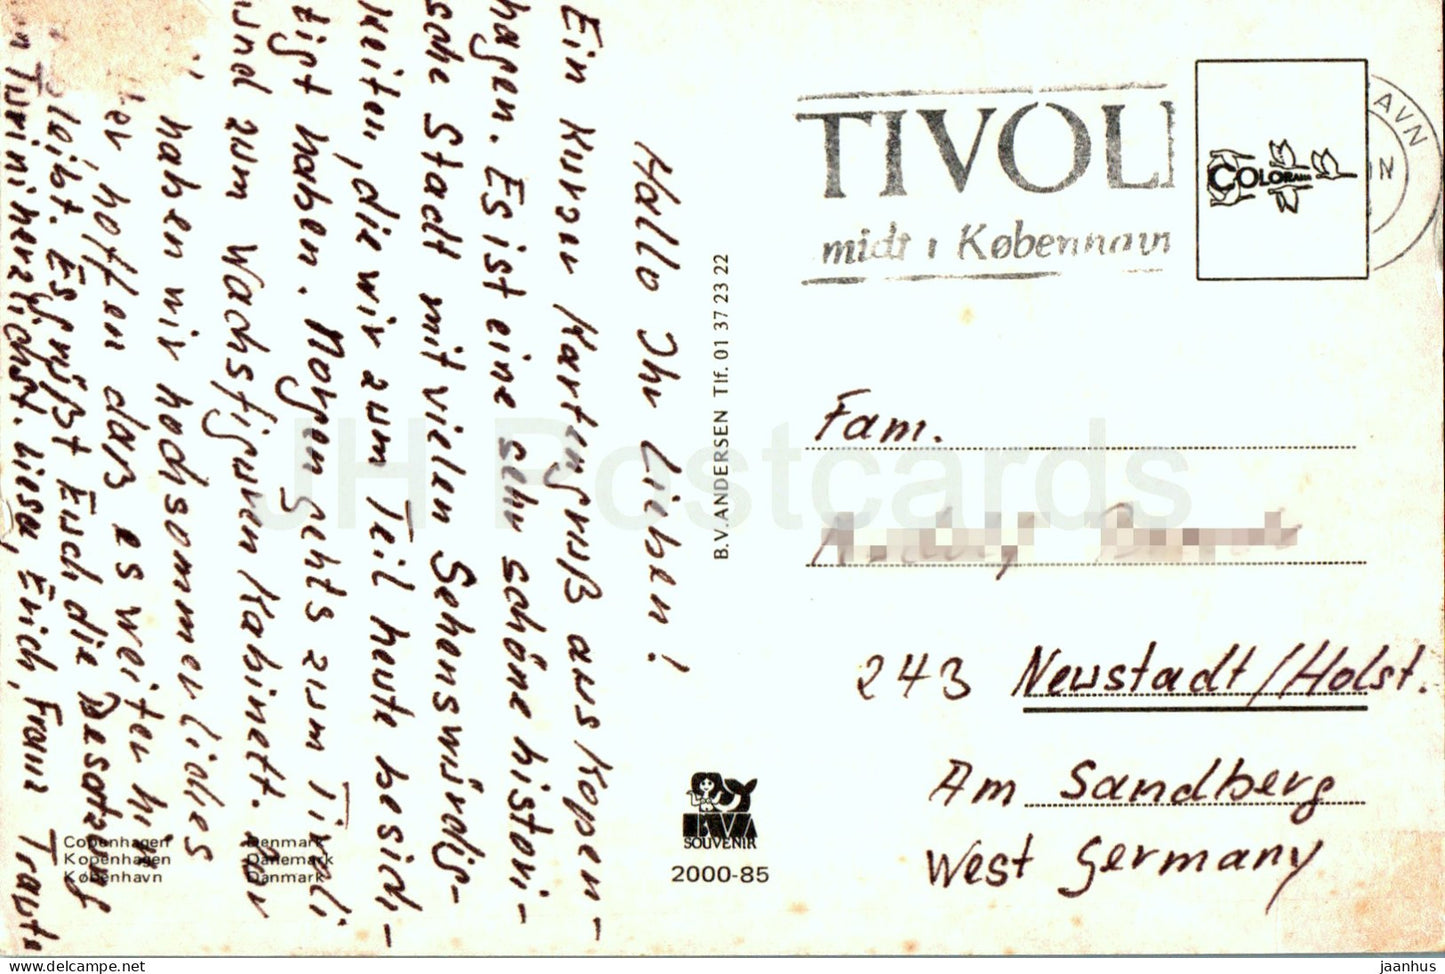 Hallo Ihr Lieben!
Ein kurzer Kartengruß aus Kopen-
hagen. Es ist eine sehr schöne histori-
sche Stadt mit vielen Sehenswürdig-
keiten, die wir zum Teil heute besich-
tigt haben. Morgen gehts zum Tivoli
und zum Wachsfiguren Kabinett.
haben wir hochsommerliches
hoffen daß es weiter hin
bleibt. Es grüßt Euch die Besatzung
herzlichst. Liese, Erich, Franz Traute
Copenhagen Denmark
Kopenhagen Dänemark
København Danmark
B.V. ANDERSEN Tlf. 01 37 23 22
BVA
SOUVENIR
2000-85
TIVOLI
midt i København
AVN
COLORAMA
Fam.
243 Neustadt/Holst.
Am Sandberg
West Germany
JH Postcards
www.delcampe.net
jaanhus